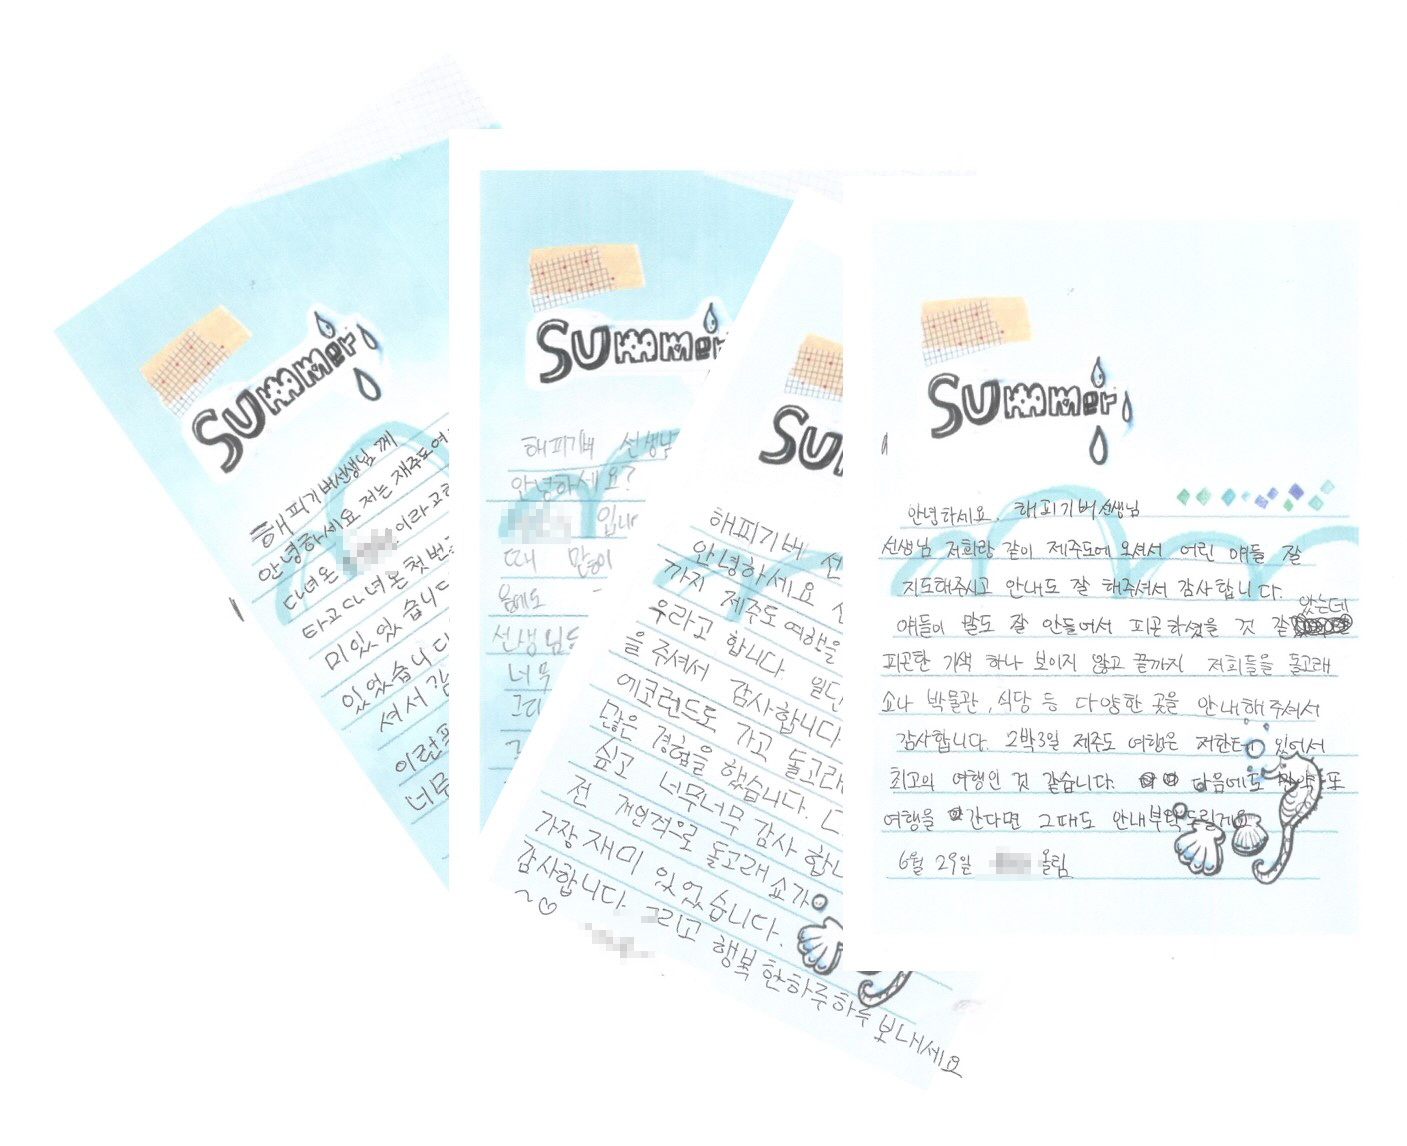 Summer
해피기버선생님께
안녕하세요 저는 재주도여
다녀온 이라고
타고 다녀온 첫번
미있었습니다
있었습니다
셔서 감
이런
너무
Summer
해피기버 선생님
안녕하세요?
입니
때 많이
음에도
선생님
너무
그리
Su
해피기버 선
안녕하세요
까지 제주도여행을
우라고 합니다. 일단
을 주셔서 감사합니다
에코랜드도 가고 돌고래
많은 경험을 했습니다.
싶고 너무너무 감사합니
전 개인적으로 돌고래쇼가
가장 재미 있었습니다.
감사합니다. 그리고 행복한하루하루 보내세요
~♡
Summer
안녕하세요. 해피기버선생님
선생님 저희랑 같이 제주도에 오셔서 어린 얘들 잘
지도해주시고 안내도 잘 해주셔서 감사합니다.
얘들이 말도 잘 안들어서 피곤하셨을 것 같았는데
피곤한 기색 하나 보이지 않고 끝까지 저희들을 돌고래
쇼나 박물관, 식당 등 다양한 곳을 안내해주셔서
감사합니다. 2박3일 제주도 여행은 저한테 있어서
최고의 여행인 것 같습니다. 다음에도 만약 또
여행을 간다면 그때도 안내부탁드릴게요?
6월 29일 올림